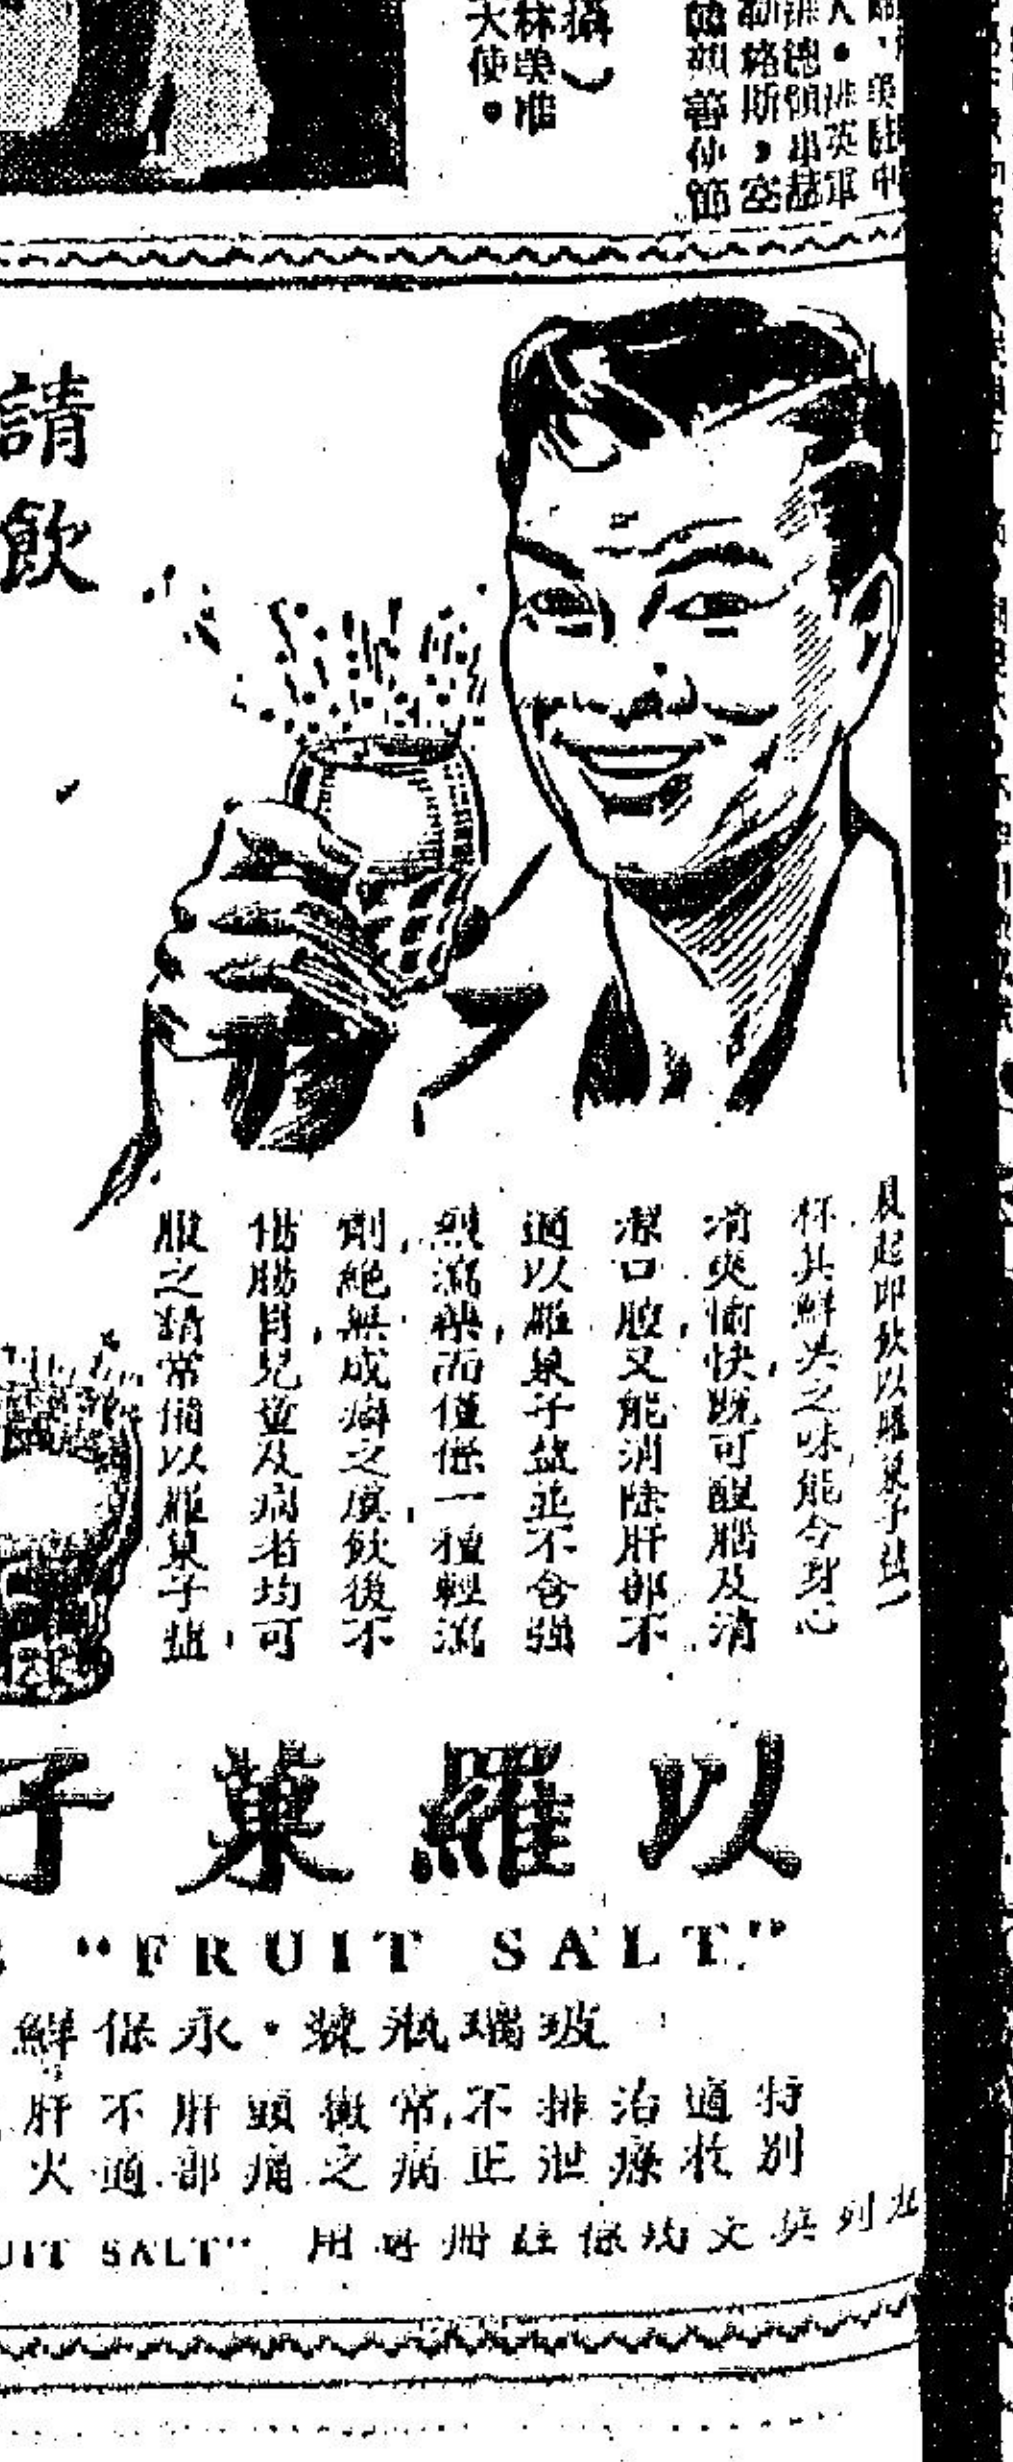 攝）
林與准
大使。
請飲
晨起即飲以羅菓子鹽一
杯其鮮美之味能令身心
清爽愉快，既可醒腦及清
潔口腔，又能消除肝部不
適以羅菓子鹽並不含強
烈瀉藥，而僅係一種輕瀉
劑，絕無成癖之虞，飲後不
傷腸胃，兒童及病者均可
服之，請常備以羅菓子鹽
以羅菓子
"FRUIT SALT"
玻璃瓶裝·永保鮮
特別
適於
治療
排泄
不正
常病
微之
頭痛
肝部
不適
肝火
列英文均係註冊專用 "FRUIT SALT"